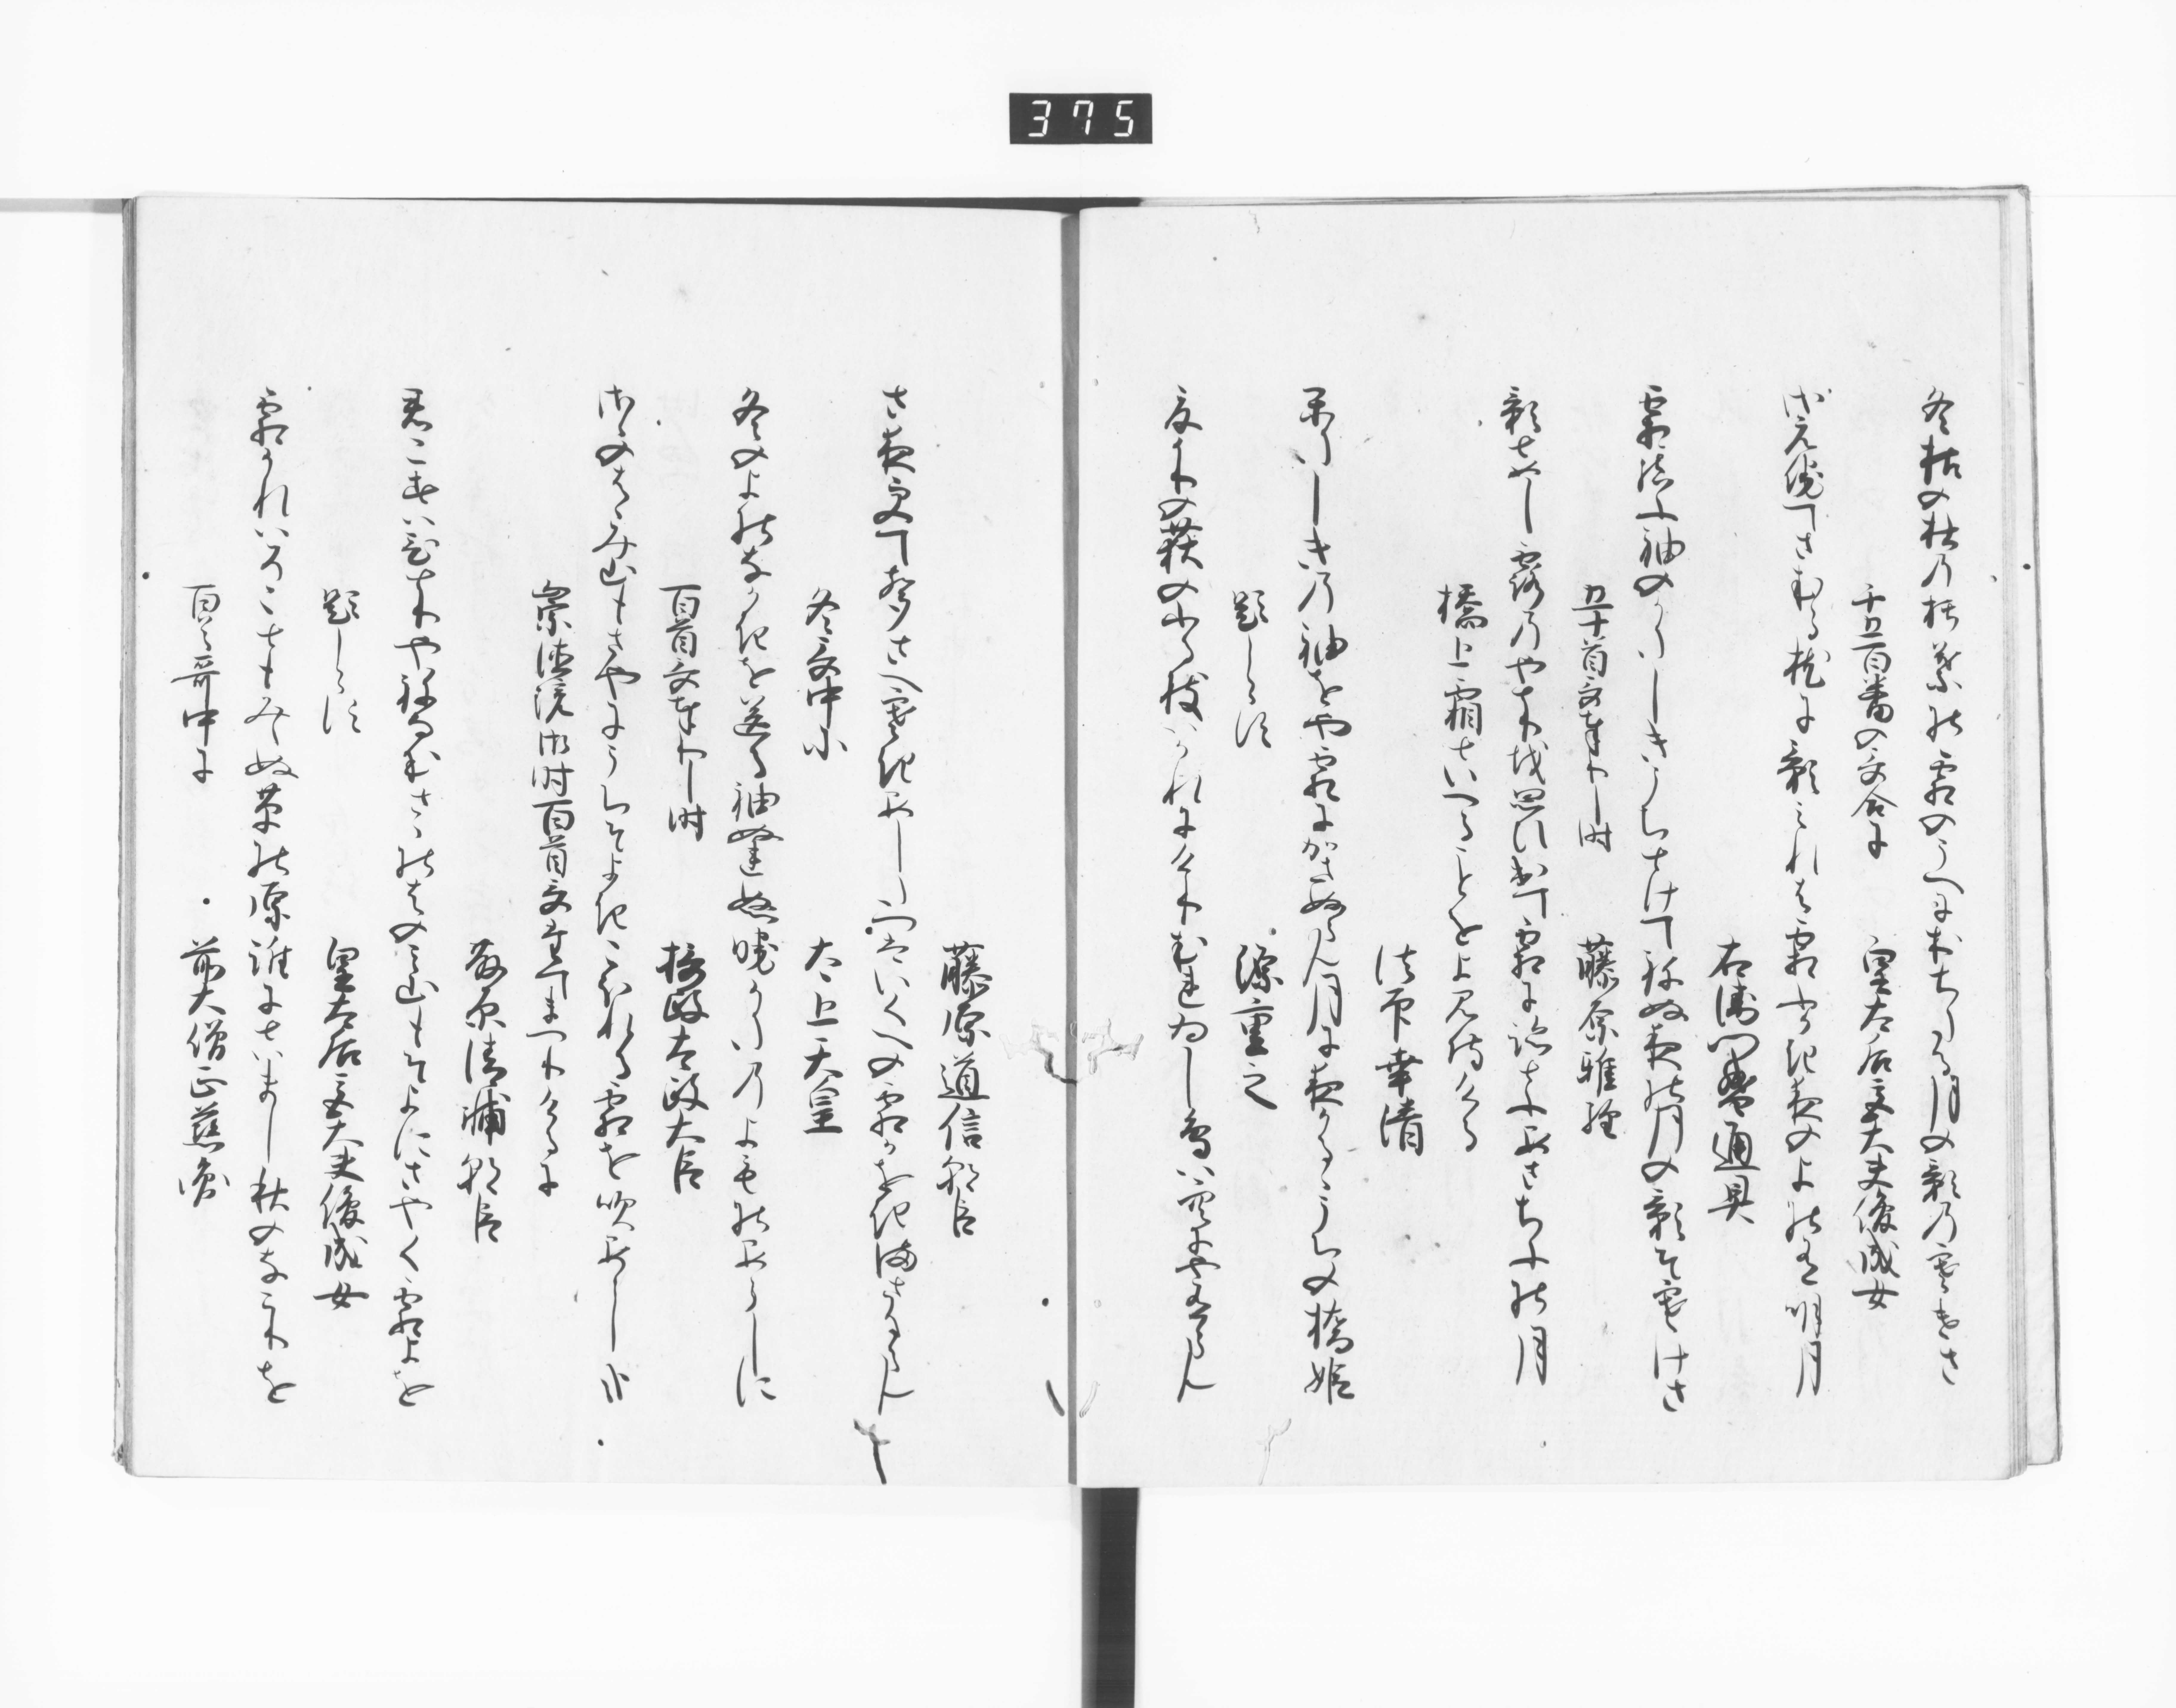 375
冬枯の杜乃朽葉能霜のうへにおちたる月の影乃寒けさ
千五百番の哥合に　皇太后宮大夫俊成女
さえ侘てさむる枕に影みれは霜ふかき夜のよ能有明月
右衛門督通具
霜結ふ袖のかたしきうちとけてねぬ夜能月の影そ寒けき
五十首哥奉りし時　藤原雅経
影とめし露乃やとりを思ひ出て霜に跡とふあさちふ能月
橋上霜といへることをよみ侍ける
法印幸清
かたしき乃袖をや霜にかさぬらん月に夜かるうちの橋姫
題しらす　源重之
夏かりの荻のふる枝はかれにけりむれゐし鳥は空にや有らん
藤原道信朝臣
さ夜更て声さへ寒きあしたつはいくへの霜かをきまさるらん
冬哥中に　太上天皇
冬のよ能なかきを送る袖ぬれぬ暁かたのよも能あらしに
百首哥奉りし時　摂政太政大臣
さゝのはゝみ山もさやにうちそよきこほれる霜を吹あらし哉
崇徳院御時百首哥奉りけるに
藤原清輔朝臣
君こすはひとりやねなむさゝ能はのみ山もそよにさやく霜よを
題しらす　皇太后宮大夫俊成女
霜かれはそこともみえぬ草能原誰にとはまし秋のなこりを
百首哥中に　前大僧正慈円